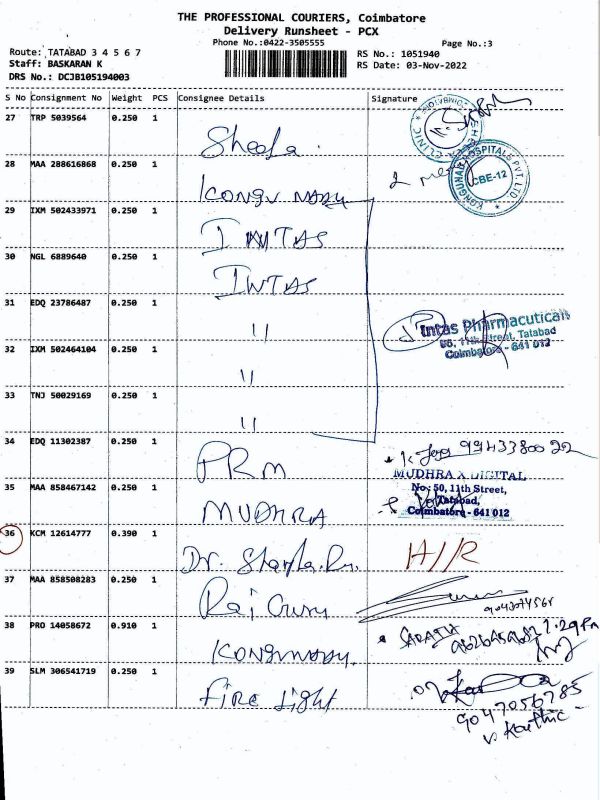 THE PROFESSIONAL COURIERS, Coimbatore
Delivery Runsheet - PCX
Phone No.:0422-3505555
Page No.:3
Route: TATABAD 3 4 5 6 7
Staff: BASKARAN K
DRS No.: DCJB105194003
RS No.: 1051940
RS Date: 03-Nov-2022
S No Consignment No Weight PCS Consignee Details Signature
27 TRP 5039564 0.250 1
Sheela.
28 MAA 288616868 0.250 1
KONGU NADU
CBE-12
29 IXM 502433971 0.250 1
INTAS
30 NGL 6889640 0.250 1
INTAS
31 EDQ 23786487 0.250 1
"
Intas Pharmacuticals
86, 11th Street, Tatabad
Coimbatore - 641 012
32 IXM 502464104 0.250 1
"
33 TNJ 50029169 0.250 1
"
34 EDQ 11302387 0.250 1
PRM
9943380022
MUDHRA X DIGITAL
35 MAA 858467142 0.250 1
MUDHRA
No: 50, 11th Street,
Tatabad,
Coimbatore - 641 012
36 KCM 12614777 0.390 1
Dr.
H/R
37 MAA 858508283 0.250 1
Raj Guru
38 PRO 14058672 0.910 1
KONGUNADU.
SARATH
39 SLM 306541719 0.250 1
fire light
9047056785
V. Karthic